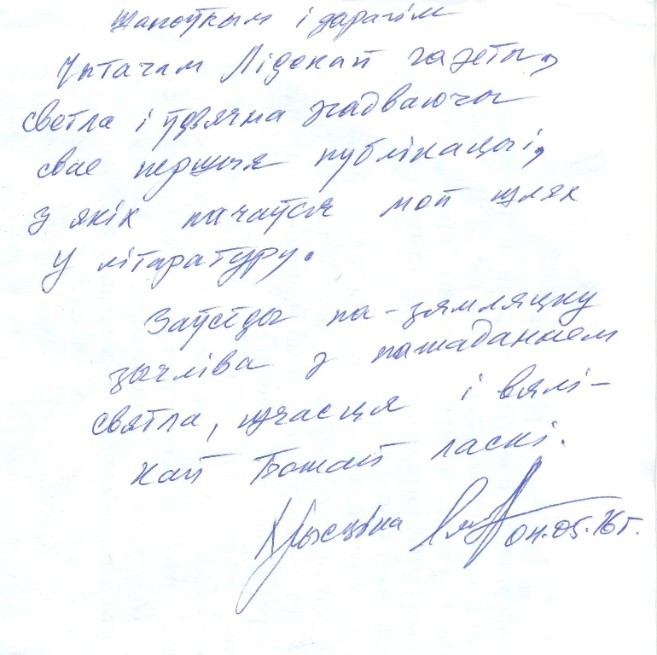 Шаноўным і дарагім
чытачам Лідскай газеты,
светла і ўдзячна згадваючы
свае першыя публікацыі,
з якіх пачаўся мой шлях
у літаратуру.
Заўсёды па-зямляцку
зычліва з пажаданнем
святла, шчасця і вялі-
кай Божай ласкі.
Крысціна 04.05.16г.